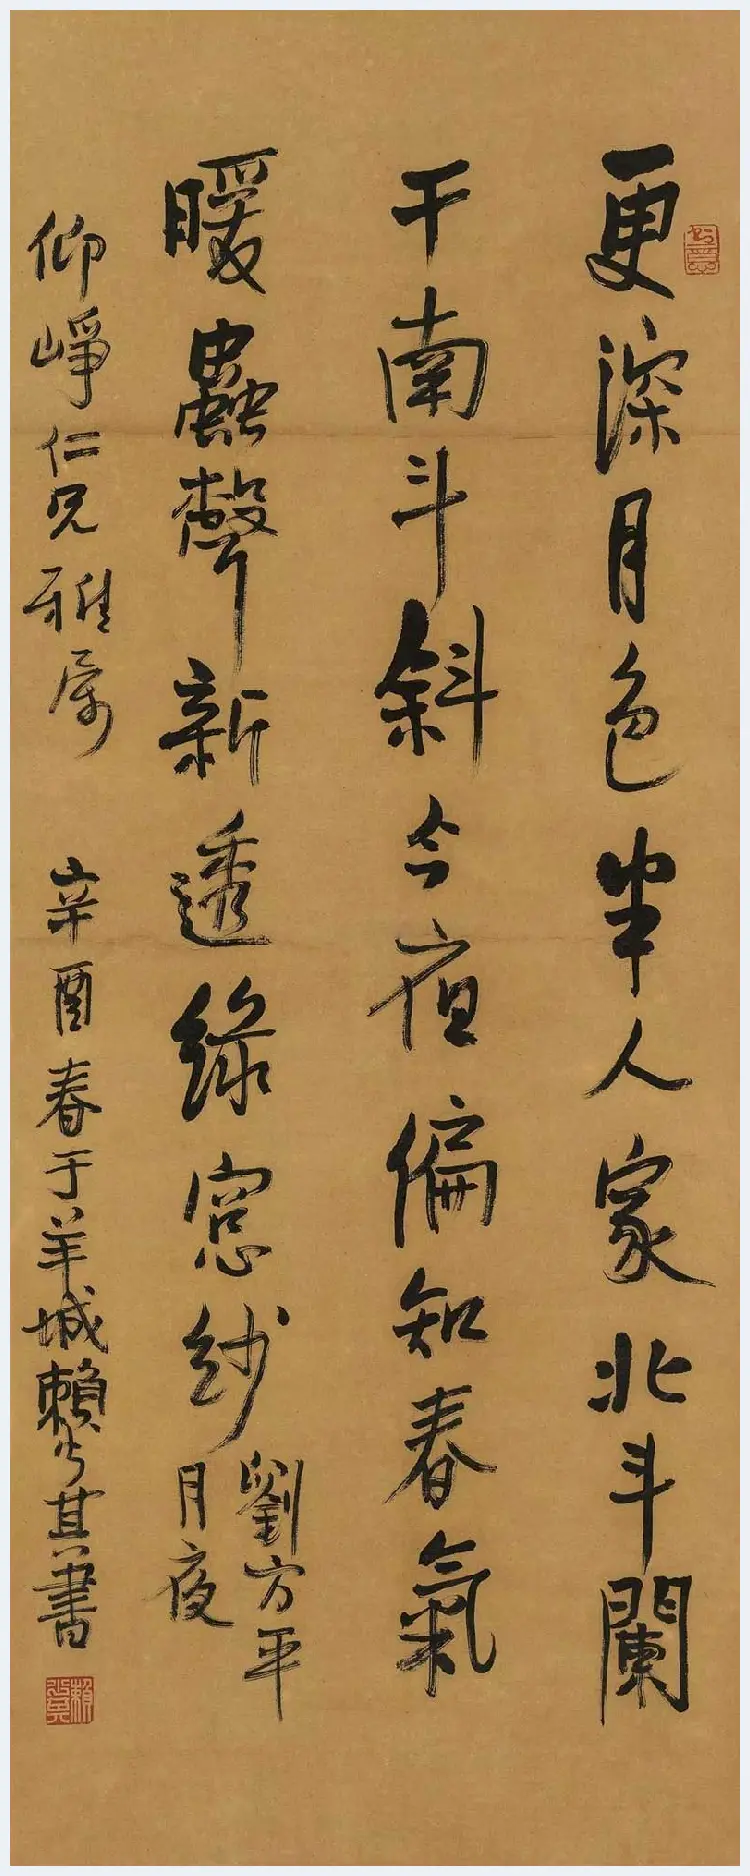 更深月色半人家北斗闌
干南斗斜今夜偏知春氣
暖蟲聲新透綠窓紗
劉方平
月夜
仰崢仁兄雅属
辛酉春于羊城賴少其書